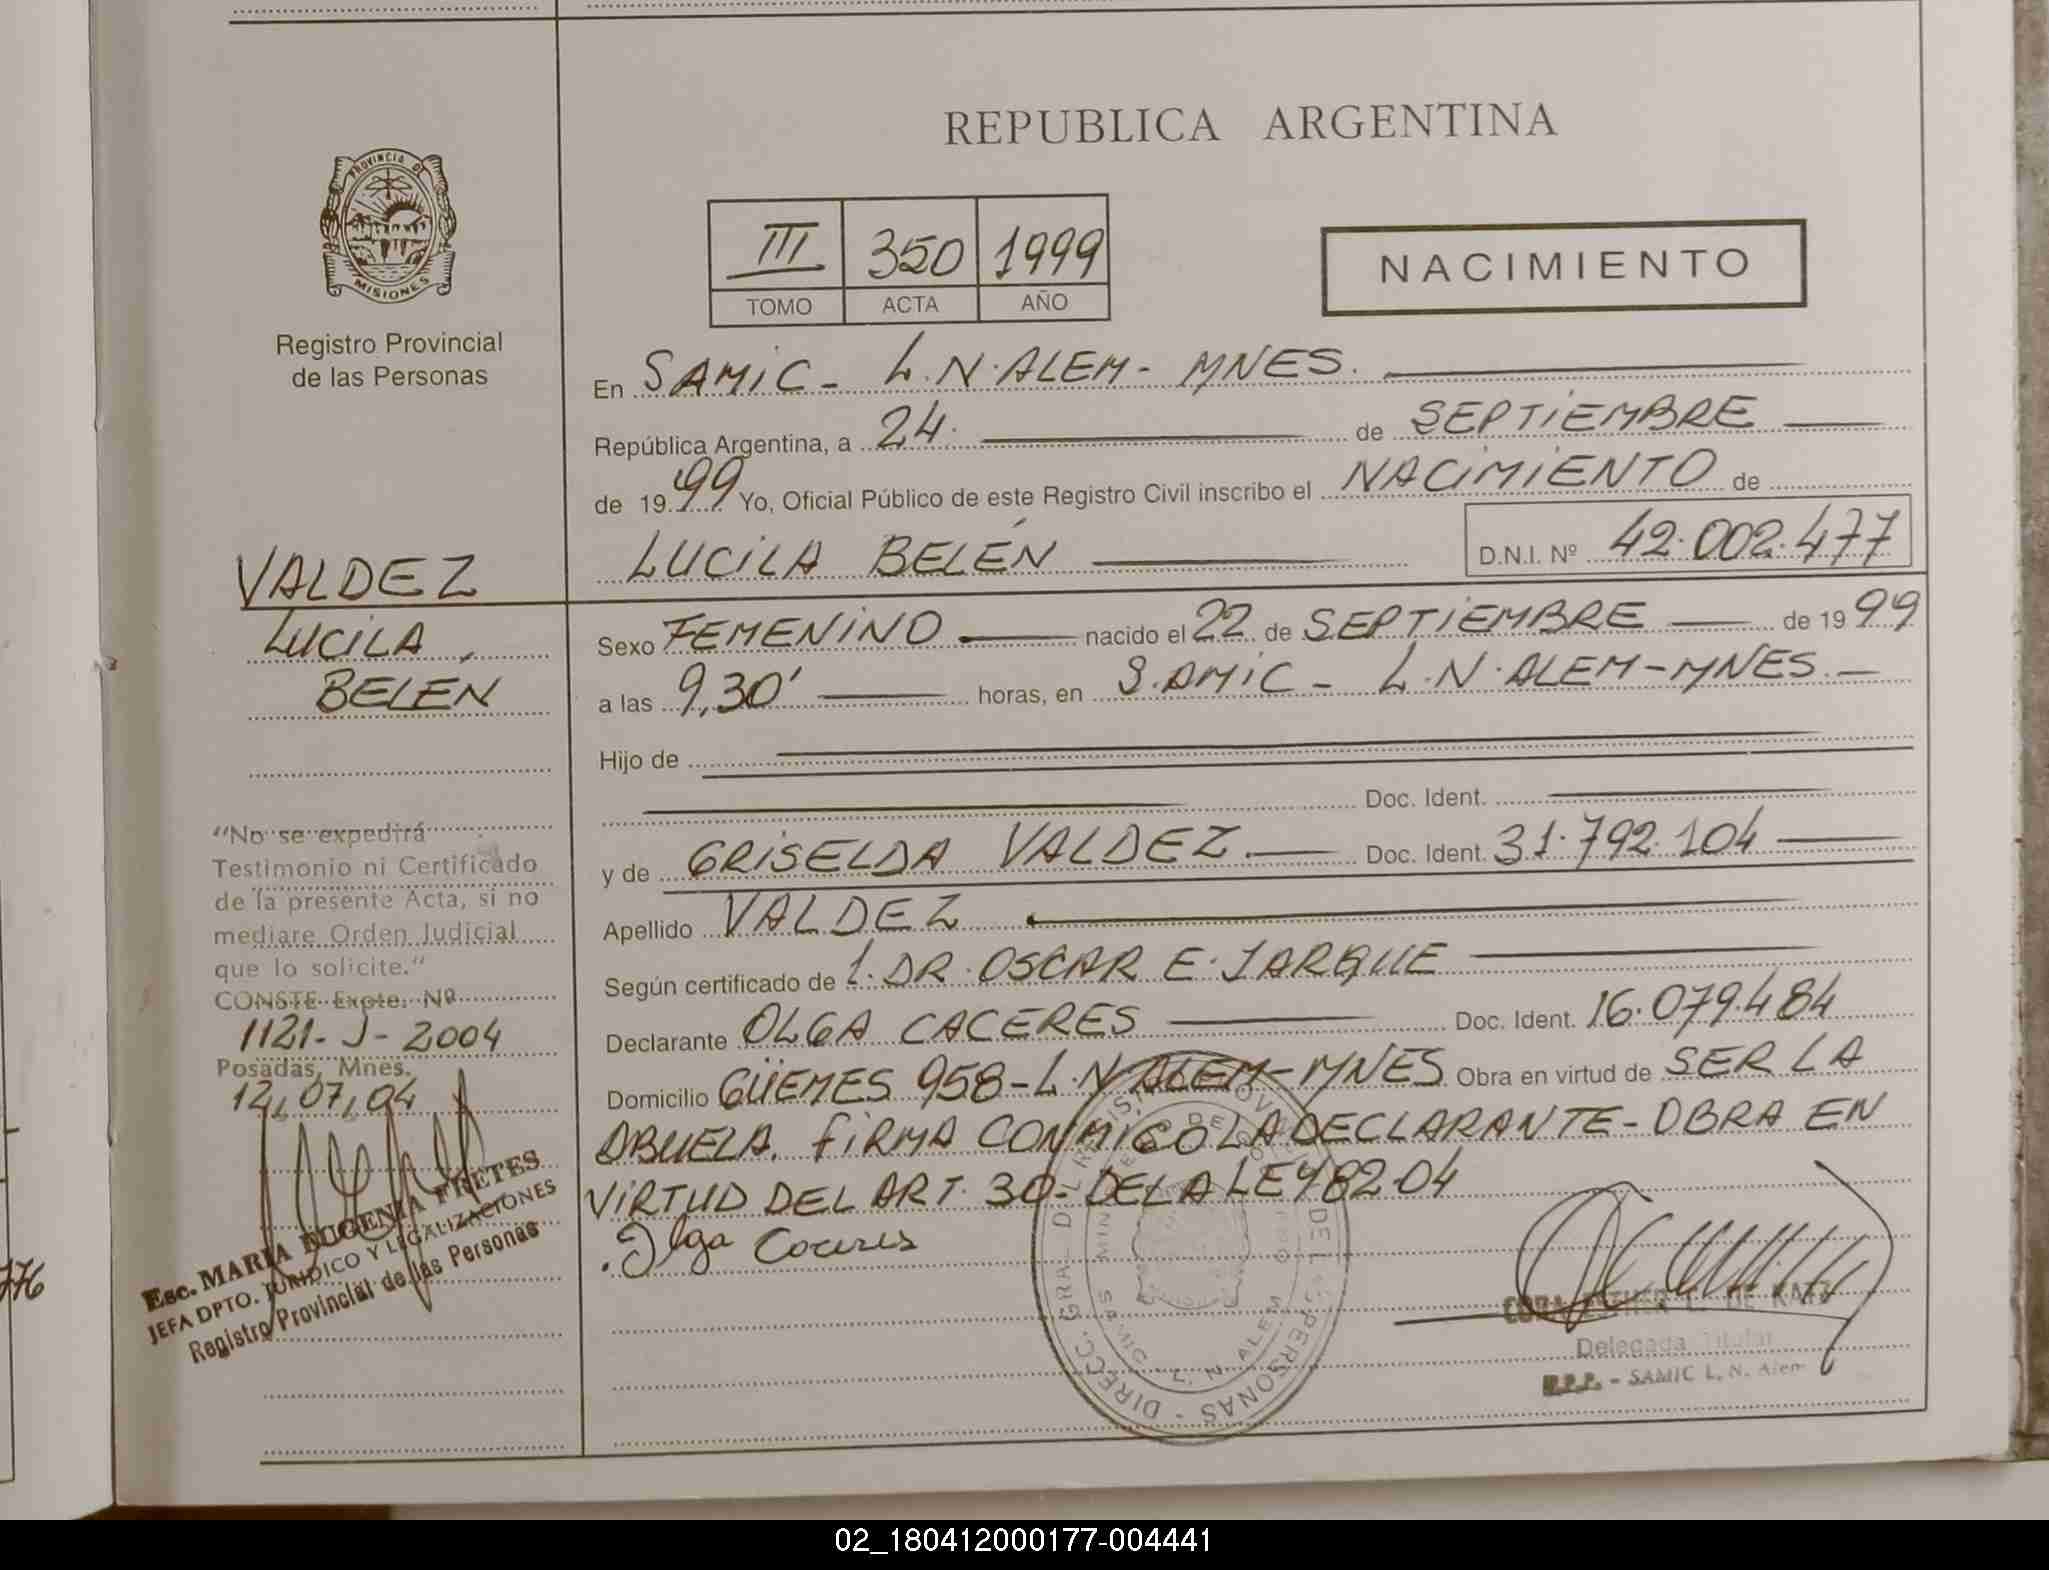 REPUBLICA ARGENTINA
PROVINCIA DE
MISIONES
Registro Provincial
de las Personas
III 350 1999
TOMO ACTA AÑO
NACIMIENTO
En SAMIC - L.N. ALEM - MNES.
República Argentina, a 24 de SEPTIEMBRE
de 1999 Yo, Oficial Público de este Registro Civil inscribo el NACIMIENTO de
LUCILA BELÉN D.N.I. Nº 42.002.477
VALDEZ
LUCILA
BELÉN
Sexo FEMENINO nacido el 22 de SEPTIEMBRE de 1999
a las 9,30' horas, en S.AMIC - L.N. ALEM - MNES.
Hijo de
Doc. Ident.
y de GRISELDA VALDEZ. Doc. Ident. 31.792.104
Apellido VALDEZ
Según certificado de 1. DR. OSCAR E. JARQUE
Declarante OLGA CACERES Doc. Ident. 16.079.484
Domicilio GÜEMES 958 - L.N. ALEM - MNES Obra en virtud de SER LA
ABUELA. FIRMA CONMIGO LA DECLARANTE - OBRA EN
VIRTUD DEL ART. 30 - DE LA LEY 82.04
Olga Caceres
"No se expedirá
Testimonio ni Certificado
de la presente Acta, si no
mediare Orden Judicial
que lo solicite."
CONSTE Expte. Nº
1121 - J - 2004
Posadas, Mnes.
12, 07, 04
Esc. MARIA EUGENIA FRETES
JEFA DPTO. JURIDICO Y LEGALIZACIONES
Registro Provincial de las Personas
CORA ESTHER C. DE KATZ
Delegada Titular
R.P.P. - SAMIC L. N. Alem
DIRECC. GRAL. DEL REGISTRO PROV. DE LAS PERSONAS
SAMIC L. N. ALEM
776
02_180412000177-004441